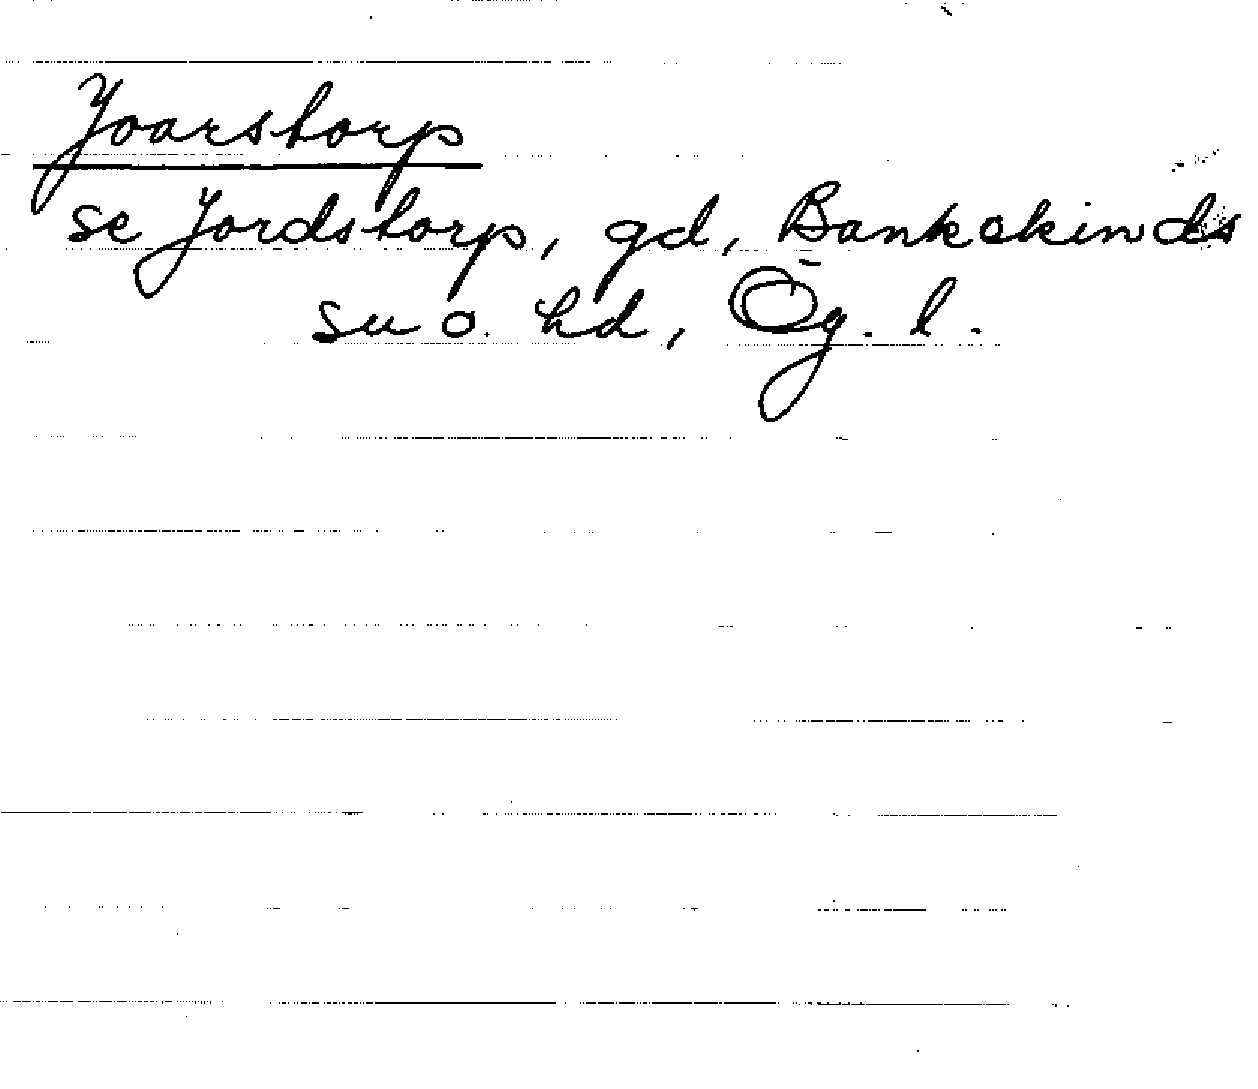 Joarstorp
se Jordstorp, gd, Bankekinds
sn o. hd, Ög. l.